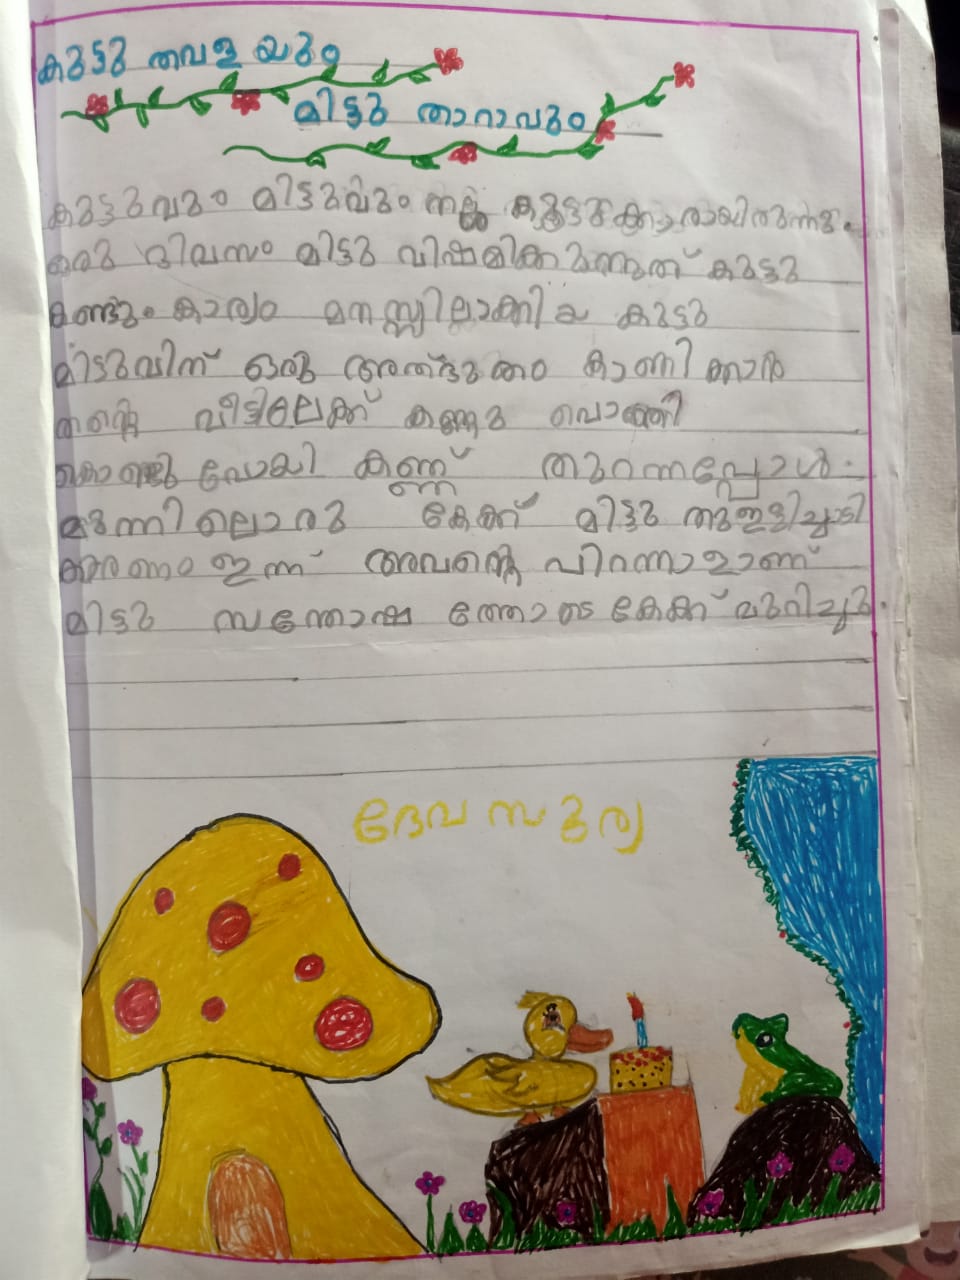 കുട്ടു തവളയും
മിട്ടു താറാവും
കുട്ടുവും മിട്ടുവും നല്ല കൂട്ടുക്കാരായിരുന്നു.
ഒരു ദിവസം മിട്ടു വിഷമിക്കുന്നത് കുട്ടു
കണ്ടും കാര്യം മനസ്സിലാക്കിയ കുട്ടു
മിട്ടുവിന് ഒരു അത്ഭുതം കാണിക്കാൻ
തന്റെ വീട്ടിലേക്ക് കണ്ണു പൊത്തി
കൊണ്ടു പോയി കണ്ണ് തുറന്നപ്പോൾ
മുന്നിലൊരു കേക്ക് മിട്ടു തുള്ളിച്ചാടി
കാരണം ഇന്ന് അവന്റെ പിറന്നാളാണ്
മിട്ടു സന്തോഷത്തോടെ കേക്ക് മുറിച്ചു.
ദേവസൂര്യ